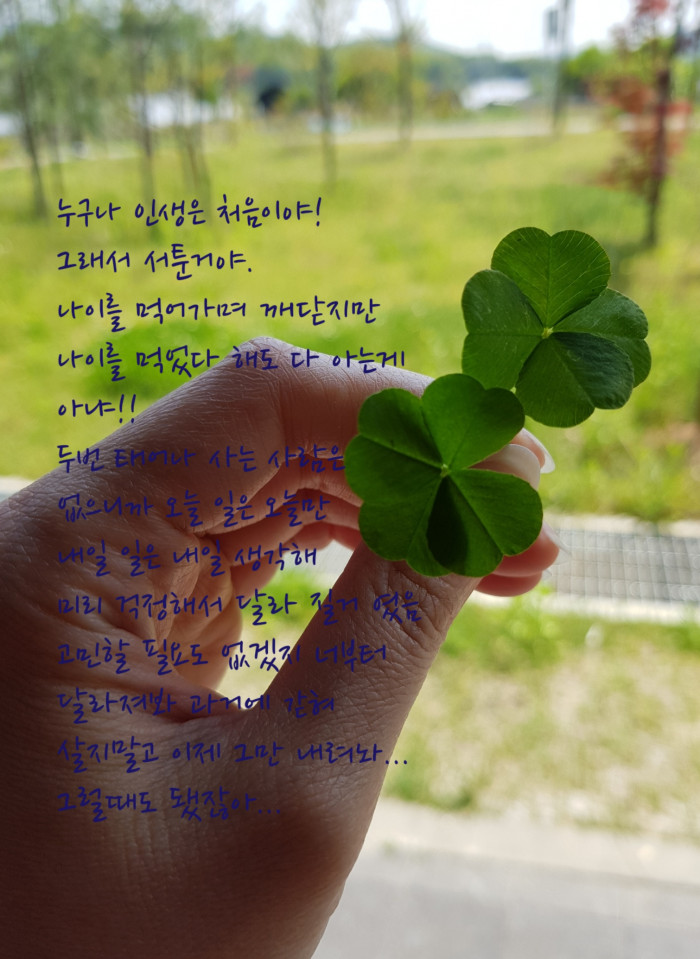 누구나 인생은 처음이야!
그래서 서툰거야.
나이를 먹어가며 깨닫지만
나이를 먹었다 해도 다 아는게
아냐!!
두번 태어나 사는 사람은
없으니까 오늘 일은 오늘만
내일 일은 내일 생각해
미리 걱정해서 달라 질거 였음
고민할 필요도 없겠지 너부터
달라져봐 과거에 갇혀
살지말고 이제 그만 내려놔...
그럴때도 됐잖아...